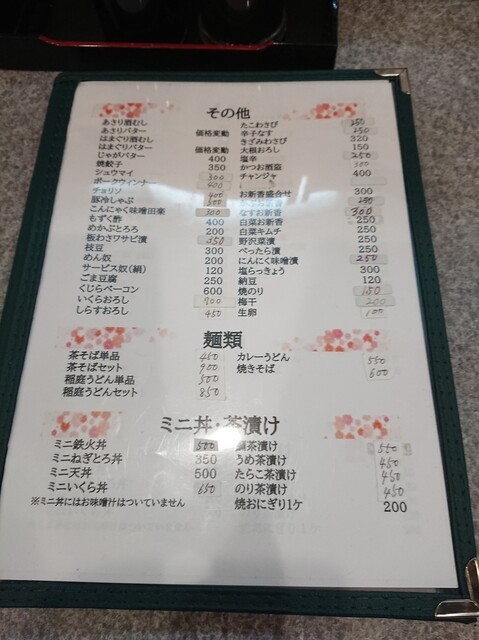 その他
あさり酒むし
あさりバター 価格変動
はまぐり酒むし
はまぐりバター 価格変動
じゃがバター 400
焼餃子 350
シュウマイ 300
ポークウィンナー 400
チョリソ 400
豚冷しゃぶ 500
こんにゃく味噌田楽 300
もずく酢 400
めかぶとろろ 200
板わさワサビ漬 350
枝豆 300
めん奴 200
サービス奴(絹) 120
ごま豆腐 250
くじらベーコン 600
いくらおろし 900
しらすおろし 450
たこわさび 250
辛子なす 250
きざみわさび 320
大根おろし 150
塩辛 250
かつお酒盗 300
チャンジャ 400
お新香盛合せ 300
お新香 250
なすお新香 300
白菜お新香 250
白菜キムチ 250
野沢菜漬 250
べったら漬 250
にんにく味噌漬 250
塩らっきょう 300
納豆 120
焼のり 150
梅干 200
生卵 100
麺類
茶そば単品 450
茶そばセット 900
稲庭うどん単品 500
稲庭うどんセット 850
カレーうどん 550
焼きそば 600
ミニ丼・茶漬け
ミニ鉄火丼 500
ミニねぎとろ丼 350
ミニ天丼 500
ミニいくら丼 650
※ミニ丼にはお味噌汁はついていません
茶漬け 550
うめ茶漬け 450
たらこ茶漬け 450
のり茶漬け 450
焼おにぎり1ケ 200